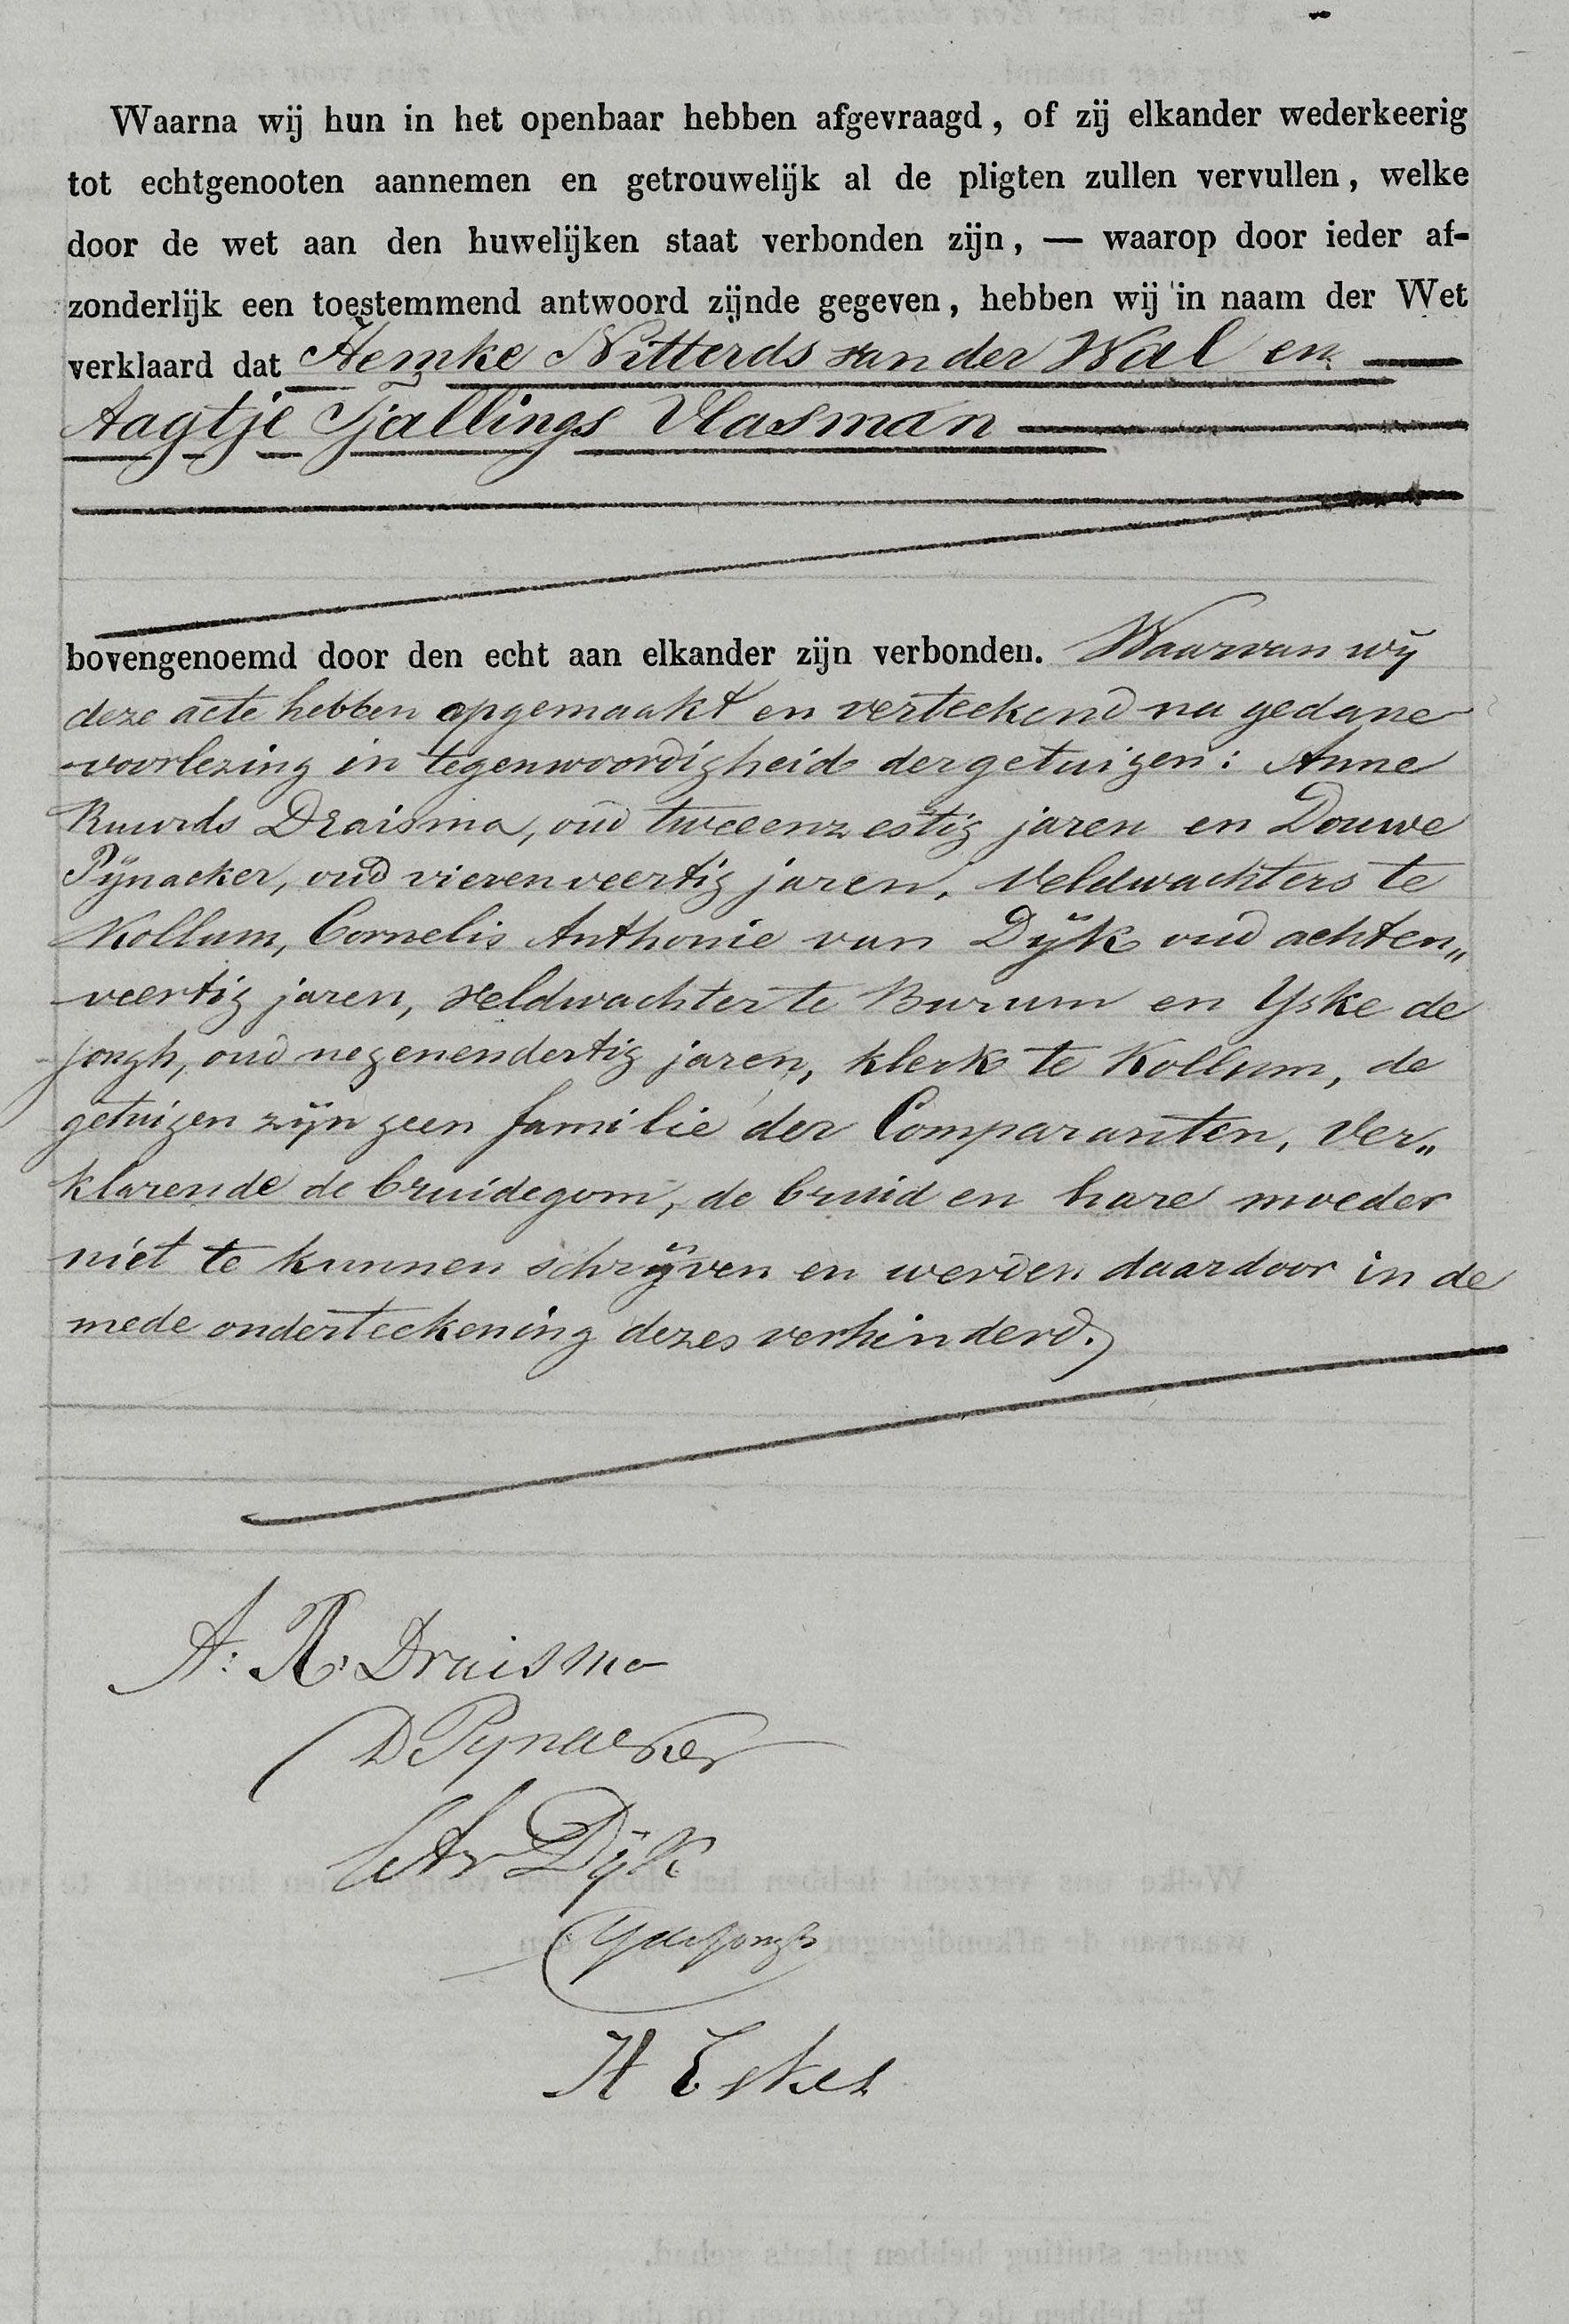 Waarna wij hun in het openbaar hebben afgevraagd, of zij elkander wederkeerig
tot echtgenooten aannemen en getrouwelijk al de pligten zullen vervullen, welke
door de wet aan den huwelijken staat verbonden zijn, — waarop door ieder af-
zonderlijk een toestemmend antwoord zijnde gegeven, hebben wij in naam der Wet
verklaard dat Hemke Nitterds van der Wal en
Aagtje Tjallings Vlasman
bovengenoemd door den echt aan elkander zijn verbonden. Waarvan wij
deze acte hebben opgemaakt en verteekend na gedane
voorlezing in tegenwoordigheid der getuigen: Anne
Ruurds Draisma, oud tweeenzestig jaren en Douwe
Pijnacker, oud vierenveertig jaren, veldwachters te
Kollum, Cornelis Anthonie van Dijk oud achten„
veertig jaren, veldwachter te Burum en Yske de
Jongh, oud negenendertig jaren, klerk te Kollum, de
getuigen zijn geen familie der Comparanten, Ver„
klarende de bruidegom, de bruid en hare moeder
niet te kunnen schrijven en werden daardoor in de
mede onderteekening dezes verhinderd.
A: R: Draisma
D Pynacker
CAv Dijk
Y de Jongh
H Eskes
Welke ons verzocht hebben het
waarvan de afkondigingen
zonder stuiting hebben plaats gehad.